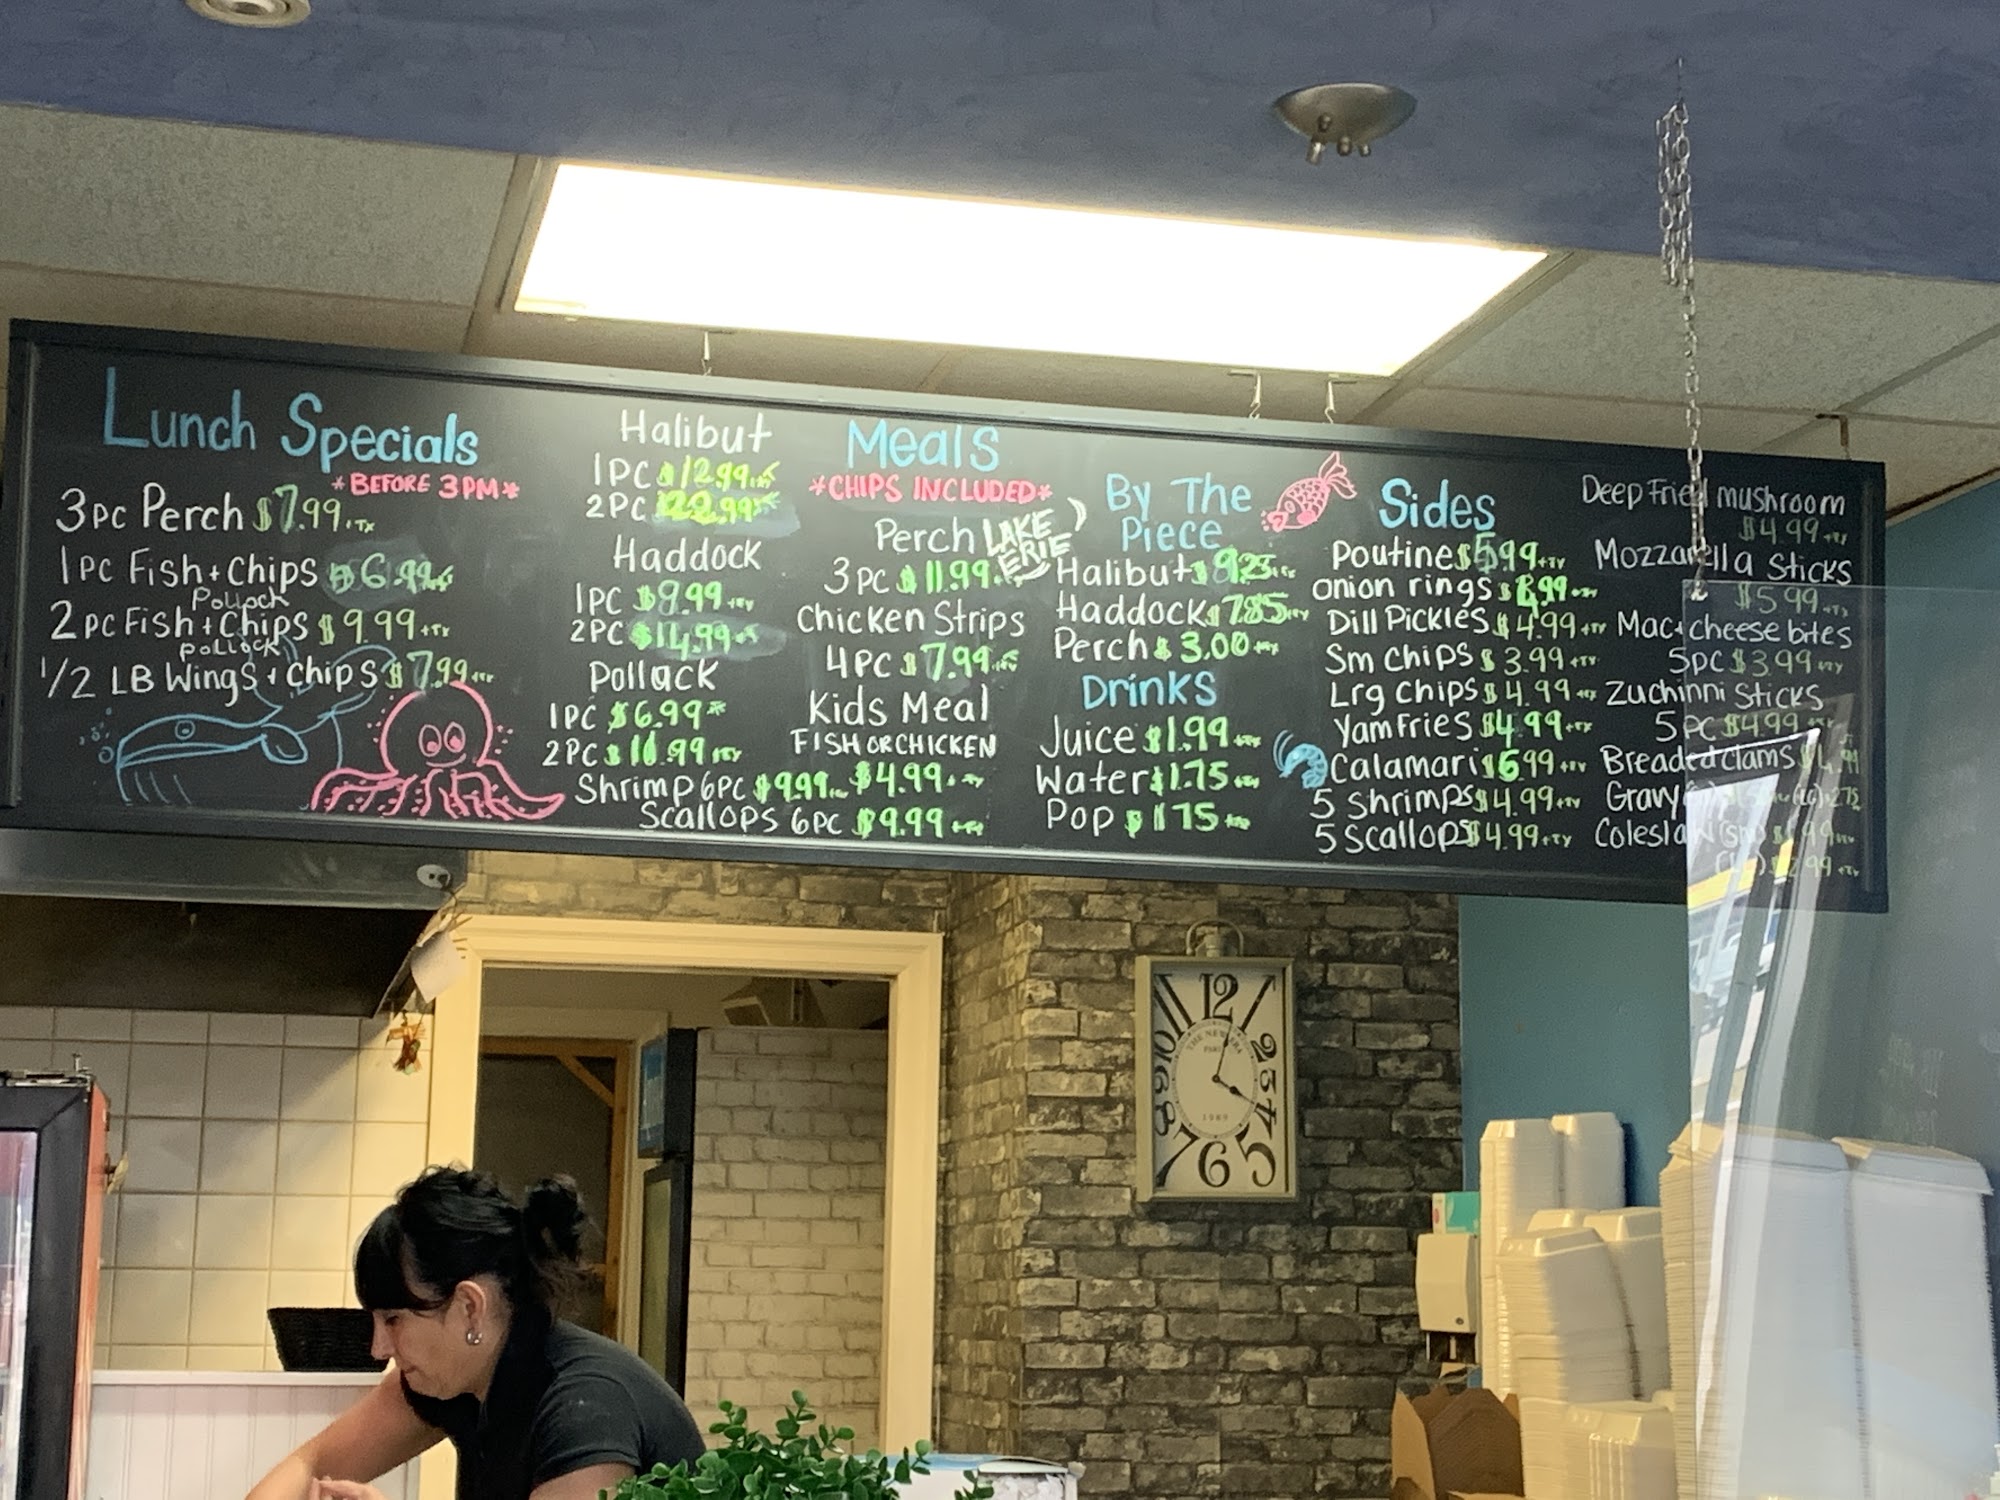 Lunch Specials
*BEFORE 3PM*
3PC Perch $7.99+TX
1PC Fish+Chips $6.99+TX
Pollock
2PC Fish+Chips $9.99+TX
pollock
1/2 LB Wings+Chips $7.99+TX
Halibut
1PC $12.99+TX
2PC $22.99+TX
Haddock
1PC $9.99+TX
2PC $14.99+TX
Pollack
1PC $6.99+TX
2PC $10.99+TX
Shrimp 6PC $9.99+TX
Scallops 6PC $9.99+TX
Meals
*CHIPS INCLUDED*
Perch LAKE ERIE
3PC $11.99+TX
Chicken Strips
4PC $7.99+TX
Kids Meal
FISH OR CHICKEN
$4.99+TX
By The
Piece
Halibut $9.25+TX
Haddock $7.85+TX
Perch $3.00+TX
Drinks
Juice $1.99+TX
Water $1.75+TX
Pop $1.75+TX
Sides
Poutine $5.99+TX
Onion rings $6.99+TX
Dill Pickles $4.99+TX
Sm Chips $3.99+TX
Lrg Chips $4.99+TX
Yam Fries $4.99+TX
Calamari $6.99+TX
5 Shrimps $4.99+TX
5 Scallops $4.99+TX
Deep Fried mushroom
$4.99+TX
Mozzarella Sticks
$5.99+TX
Mac+cheese bites
5PC $3.99+TX
Zuchinni Sticks
5PC $4.99+TX
Breaded Clams
Gravy
Coleslaw (sm) $1.99+TX
$2.99+TX
THE NEW ERA
PARIS
1989
12
1
2
3
4
5
6
7
8
9
10
11